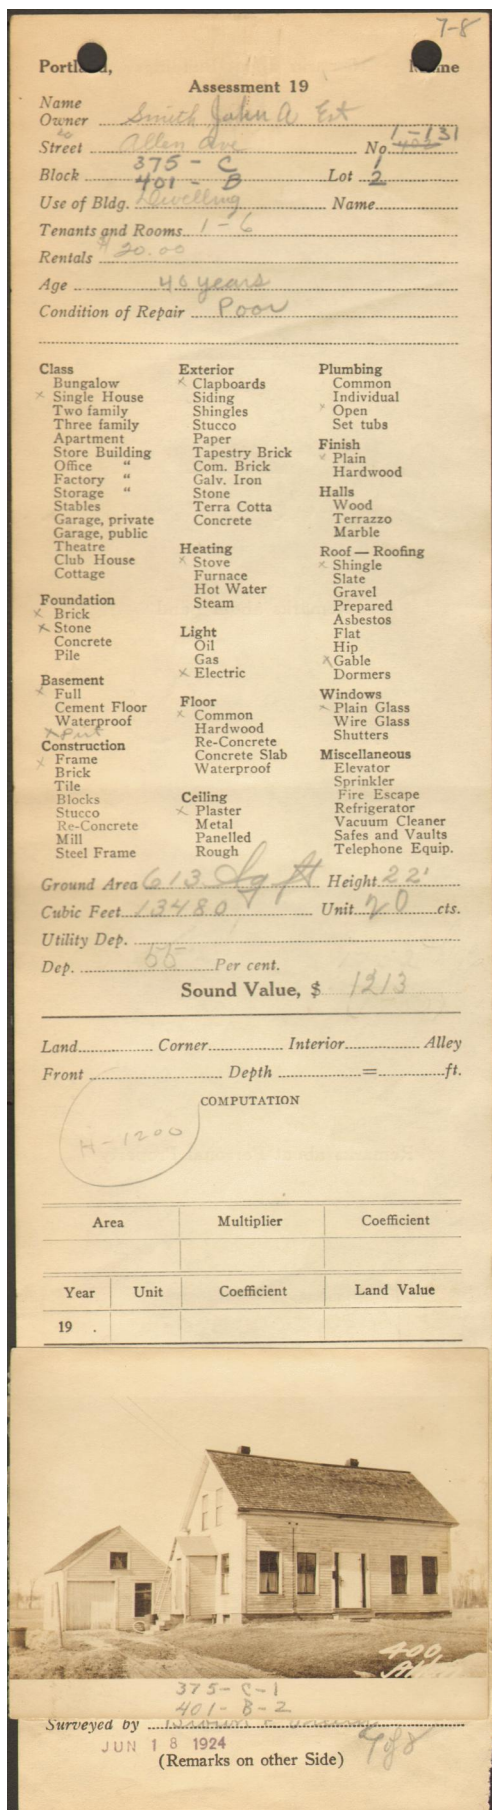 7-8
Portland, Maine
Assessment 19
Name
Owner Smith John A Est
Street Allen Ave No. 1-131
Block 375 - C Lot 1
401 - B 2
Use of Bldg. Dwelling Name
Tenants and Rooms 1 - 6
Rentals $20.00
Age 40 years
Condition of Repair Poor
Class
Bungalow
x Single House
Two family
Three family
Apartment
Store Building
Office "
Factory "
Storage "
Stables
Garage, private
Garage, public
Theatre
Club House
Cottage
Foundation
x Brick
x Stone
Concrete
Pile
Basement
x Full
Cement Floor
Waterproof
x Part
Construction
x Frame
Brick
Tile
Blocks
Stucco
Re-Concrete
Mill
Steel Frame
Exterior
x Clapboards
Siding
Shingles
Stucco
Paper
Tapestry Brick
Com. Brick
Galv. Iron
Stone
Terra Cotta
Concrete
Heating
x Stove
Furnace
Hot Water
Steam
Light
Oil
Gas
x Electric
Floor
x Common
Hardwood
Re-Concrete
Concrete Slab
Waterproof
Ceiling
x Plaster
Metal
Panelled
Rough
Plumbing
Common
Individual
x Open
Set tubs
Finish
x Plain
Hardwood
Halls
Wood
Terrazzo
Marble
Roof — Roofing
x Shingle
Slate
Gravel
Prepared
Asbestos
Flat
Hip
x Gable
Dormers
Windows
x Plain Glass
Wire Glass
Shutters
Miscellaneous
Elevator
Sprinkler
Fire Escape
Refrigerator
Vacuum Cleaner
Safes and Vaults
Telephone Equip.
Ground Area 613 Sq ft Height 22'
Cubic Feet 13480 Unit 20 cts.
Utility Dep.
Dep. 55 Per cent.
Sound Value, $ 1213
Land Corner Interior Alley
Front Depth = ft.
COMPUTATION
H-1200
Area Multiplier Coefficient
Year Unit Coefficient Land Value
19 .
400
375-C-1
401-B-2
Surveyed by
JUN 18 1924
(Remarks on other Side)